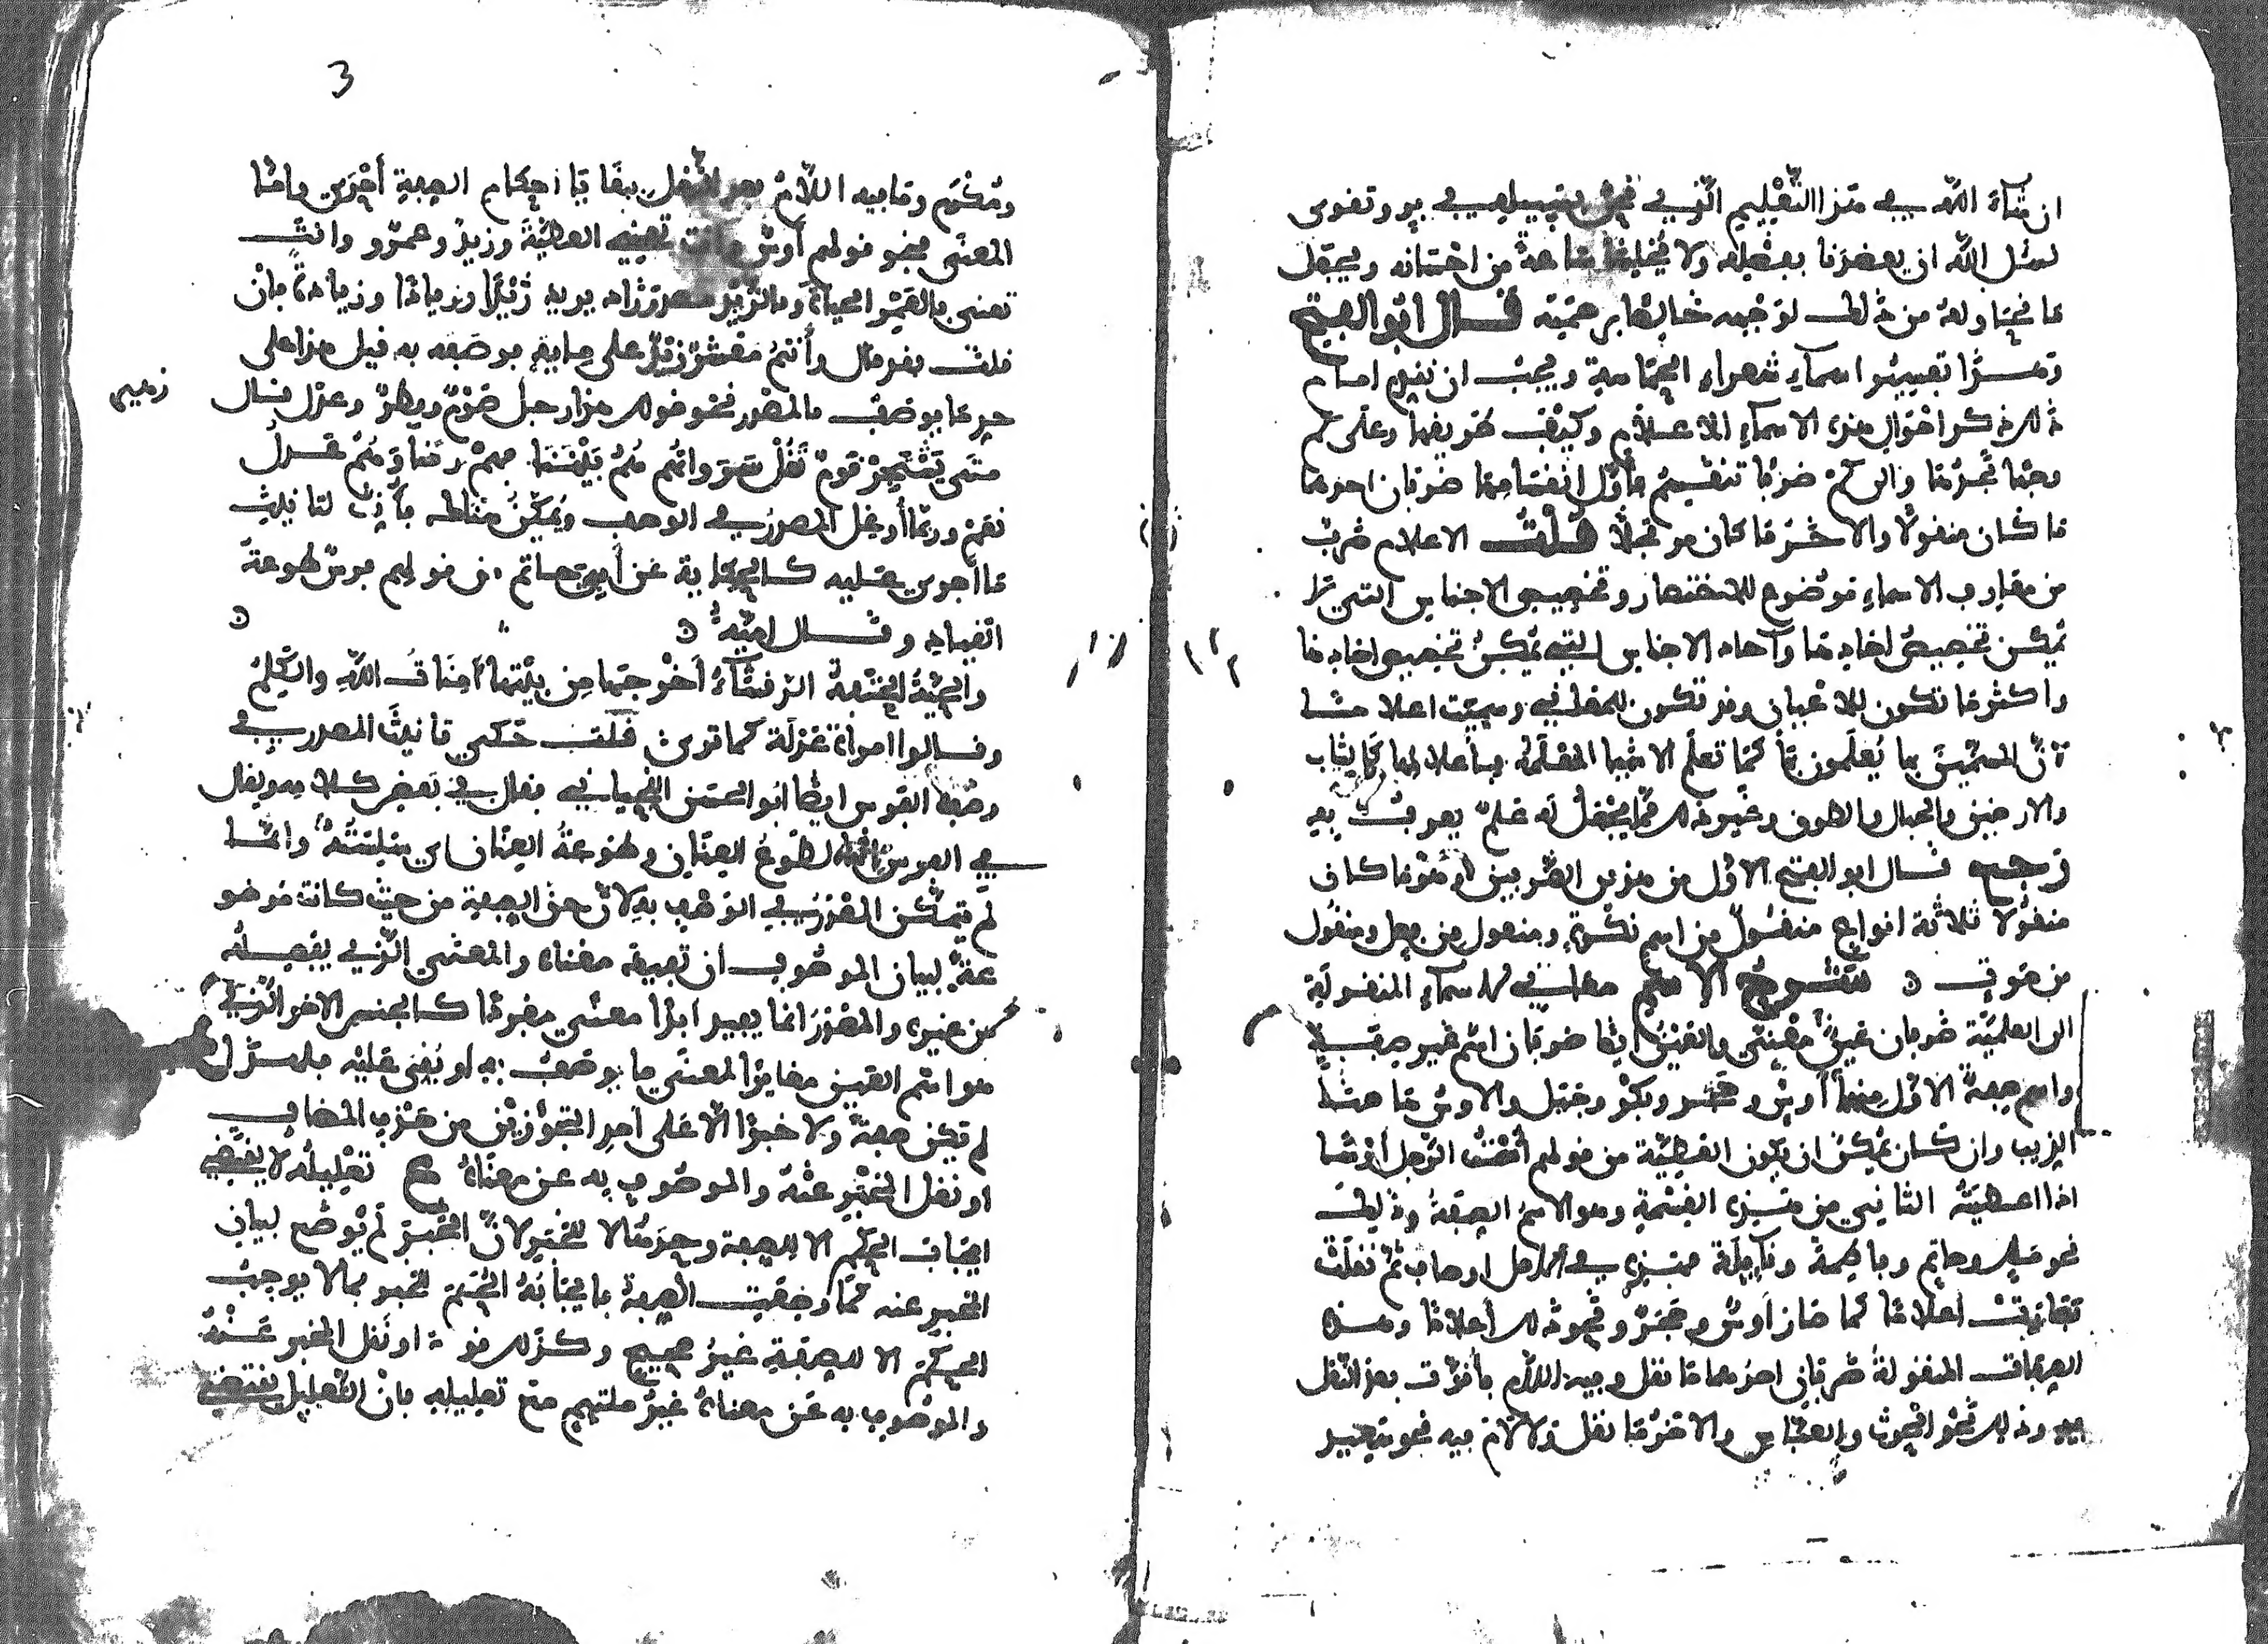 ان شآء الله في هذا التعليم الذي نحن بسبيله في بر وتقوى
نسئل الله ان يعضدنا بفضله ولا يخلينا ساعة من احسانه ويجعل
ما نحاوله من ذلك لوجهه خالصا برحمته قال ابو الفتح
وهذا تفسير اسماء شعراء الحماسة ويجب ان نقدم امام
ذلك ذكر احوال هذه الاسماء الاعلام وكيف طريقها وعلى كم
وجها نجدها والى كم ضربا تنقسم فأول انقسامها ضربان احدهما
ما كان منقولا والاخر ما كان مرتجلا قلت الاعلام ضرب
من معارف الاسماء موضوع للاختصار وتخصيص الاجناس التي لا
يمكن تخصيص احادها وآحاد الاجناس التي يمكن تخصيص احادها
واكثر ما تكون للاعيان وقد تكون للمعاني وسميت اعلاما
لان المسمين بها يعلمون بها كما تعلم الاشيا المعلمة باعلامها كالثياب
والارضين والجبال والطرق وغير ذلك مما يجعل له علم يعرف به
رجع قال ابو الفتح الاول من هذين الضربين وهو ما كان
منقولا ثلاثة انواع منقول من اسم نكرة ومنقول من فعل ومنقول
من صوت شرح الاسم الاسماء المنقولة
الى العلمية ضربان عين ومعنى والعين ايضا ضربان اسم غير صفة
واسم صفة الاول منهما أوس وحجر وبكر وجبل والاوس هاهنا
الذيب وان كان يمكن ان يكون العطية من قولهم أست الرجل أوسا
اذا اعطيته الثاني من هذه القسمة وهو الاسم الصفة وذلك
نحو مالك وحاتم وفاطمة ونايلة فهذه في الاصل اوصاف ثم نقلت
فصارت اعلاما كما صار أوس وحجر ونحو ذلك أعلاما وهذه
الصفات المنقولة ضربان احدهما ما نقل وفيه اللام فأقرت بعد النقل
فيه وذلك نحو الحرث والعباس والاخر ما نقل ولا لام فيه نحو سعيد
3
ومكرم وما فيه اللام بعد النقل ببقايا احكام الصفة أحرى واما
المعنى فنحو قولهم أوس وانت تعني العطية وزيد وعمرو وانت
تعني بالعمر الحياة وبالزيد مصدر زاد يزيد زيدا وزيادا وزيادة فان
قلت فقد قال وأنتم معشر زيد على ماية فوصف به قيل هذا على
حد ما يوصف بالمصدر نحو قولك هذا رجل صوم وفطر وعدل قال زهير
متى يشتجر قوم تقل سرواتهم هم بيننا فهم رضا وهم عدل
نعم وربما أدخل المصدر في الوصف ويمكن هناك فأنث لتانيث
ما أجري عليه كالحكاية عن أبي حاتم من قولهم فرس طوعة
القياد وقال امية
والحية الحتفة الرقشآء أخرجها من بيتها أمنات الله والكلم
وقالوا امرأة عدلة كما ترى قلت حكى تانيث المصدر في
وصف الفرس ايضا ابو الحسن اللحياني فقال في بعض كلامه ويقال
في الفرس انه لطوع العنان وطوعة العنان اي سلسته وانما
لم يتمكن المصدر في الوصف به لان حق الصفة من حيث كانت موضو
عة لبيان الموصوف ان تفيد معناه والمعنى الذي يفصله
من غيره والمصدر انما يفيد ابدا معنى مفردا كالجنس الاخر الذي
هو اسم العين مغايرا لمعنى ما يوصف به او يبنى عليه فلهذا
لم تكن صفة ولا خبرا الا على احد التجوزين من حذف المضاف
او نقل المخبر عنه والموصوف به عن معناه تعليله لا يقتضي
ايجاب الحكم الا للصفة وحدها لا للخبر لان الخبر لم يوضع لبيان
المخبر عنه كما وضعت الصفة فايجابه الحكم للخبر بما لا يوجب
الحكم الا للصفة غير صحيح وكذلك قوله او نقل المخبر عنه
والموصوف به عن معناه غير ملتئم مع تعليله فان التعليل يقتضي